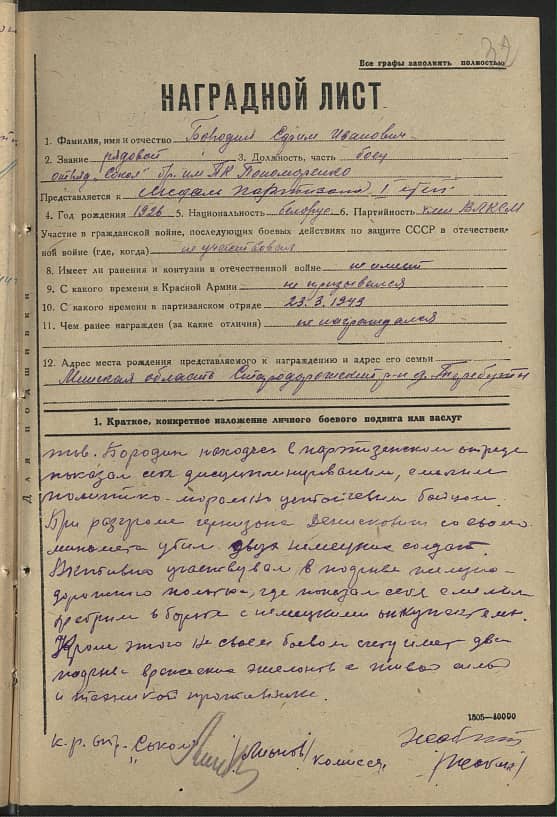 32
Все графы заполнять полностью
НАГРАДНОЙ ЛИСТ
1. Фамилия, имя и отчество Бородич Ефрим Иванович
2. Звание рядовой 3. Должность, часть боец
отряд „Сокол" бр. им ПК Пономаренко
Представляется к Медали партизана I степ
4. Год рождения 1926 5. Национальность белорус 6. Партийность член ВЛКСМ
Участие в гражданской войне, последующих боевых действиях по защите СССР в отечествен-
ной войне (где, когда) не участвовал
8. Имеет ли ранения и контузии в отечественной войне не имеет
9. С какого времени в Красной Армии не призывался
10. С какого времени в партизанском отряде 23.3.1943
11. Чем ранее награжден (за какие отличия) не награждался
12. Адрес места рождения представляемого к награждению и адрес его семьи
Минская область Стародорожский р-н д.
Для подшивки
1. Краткое, конкретное изложение личного боевого подвига или заслуг
тов. Бородич находясь в партизанском отряде
показал себя дисциплинированым, смелым
политико-морально устойчевым бойцом.
При разгроме гарнизона со своего
миномета убил двух немецких солдат.
Активно участвовал в подрыве железно-
дорожного полотна, где показал себя смелым
храбрым в борьбе с немецкими оккупантами.
Кроме этого на своем боевом счету имет два
подрыва вражеских эшелонов с живой силой
и техникой противника.
1505—40000
к-р отр. „Сокол"
Комиссар